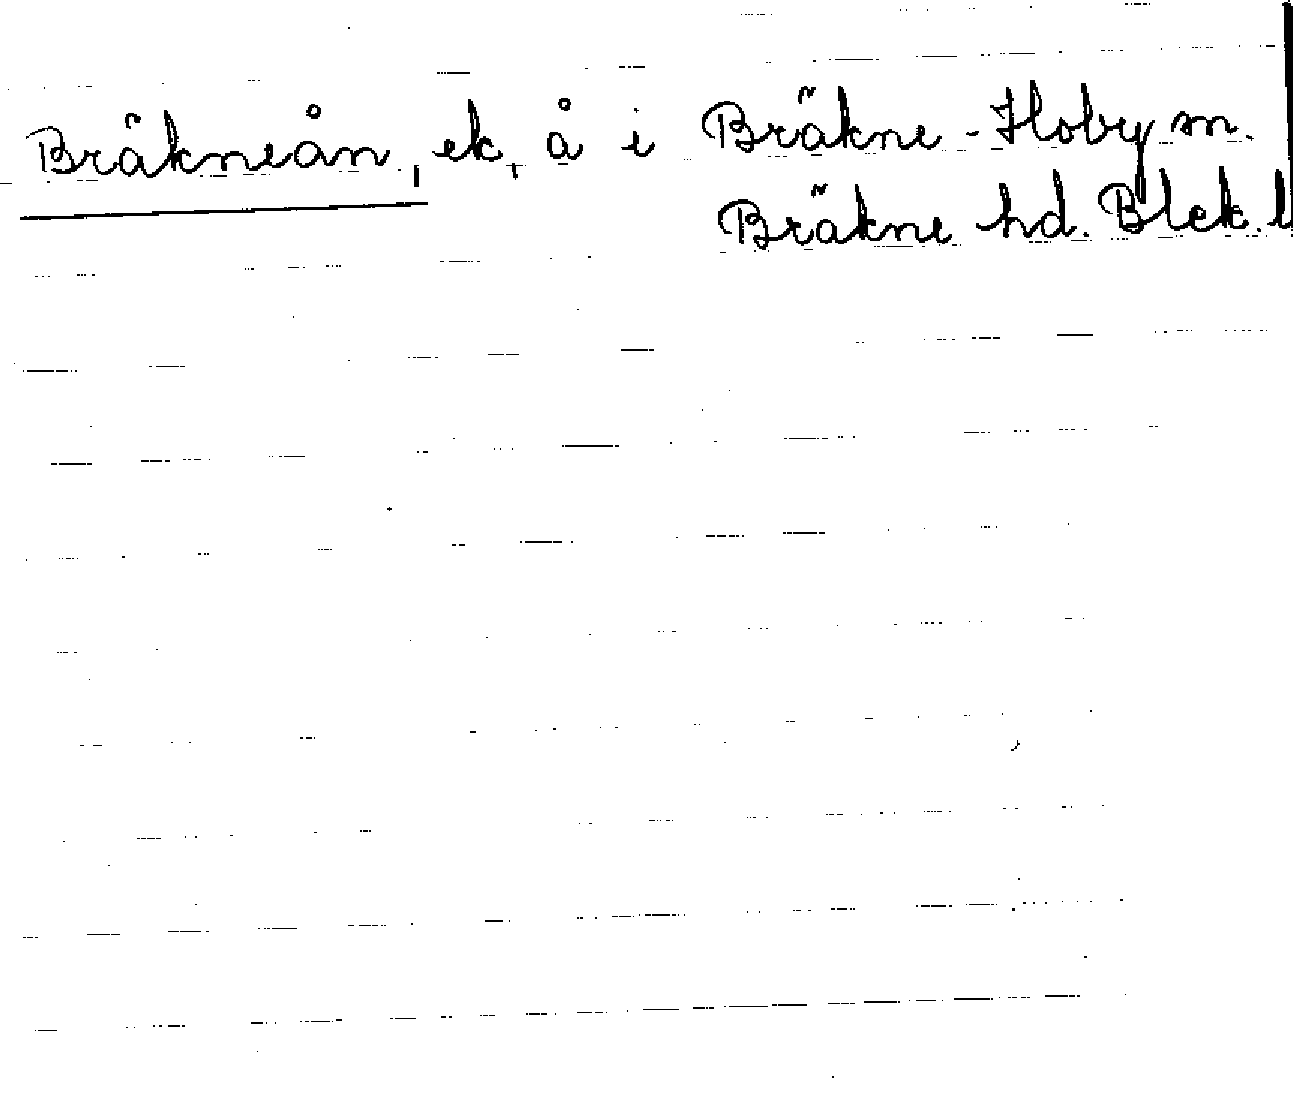 Bräkneån, ek, å i Bräkne-Hoby sn.
Bräkne hd. Blek. l